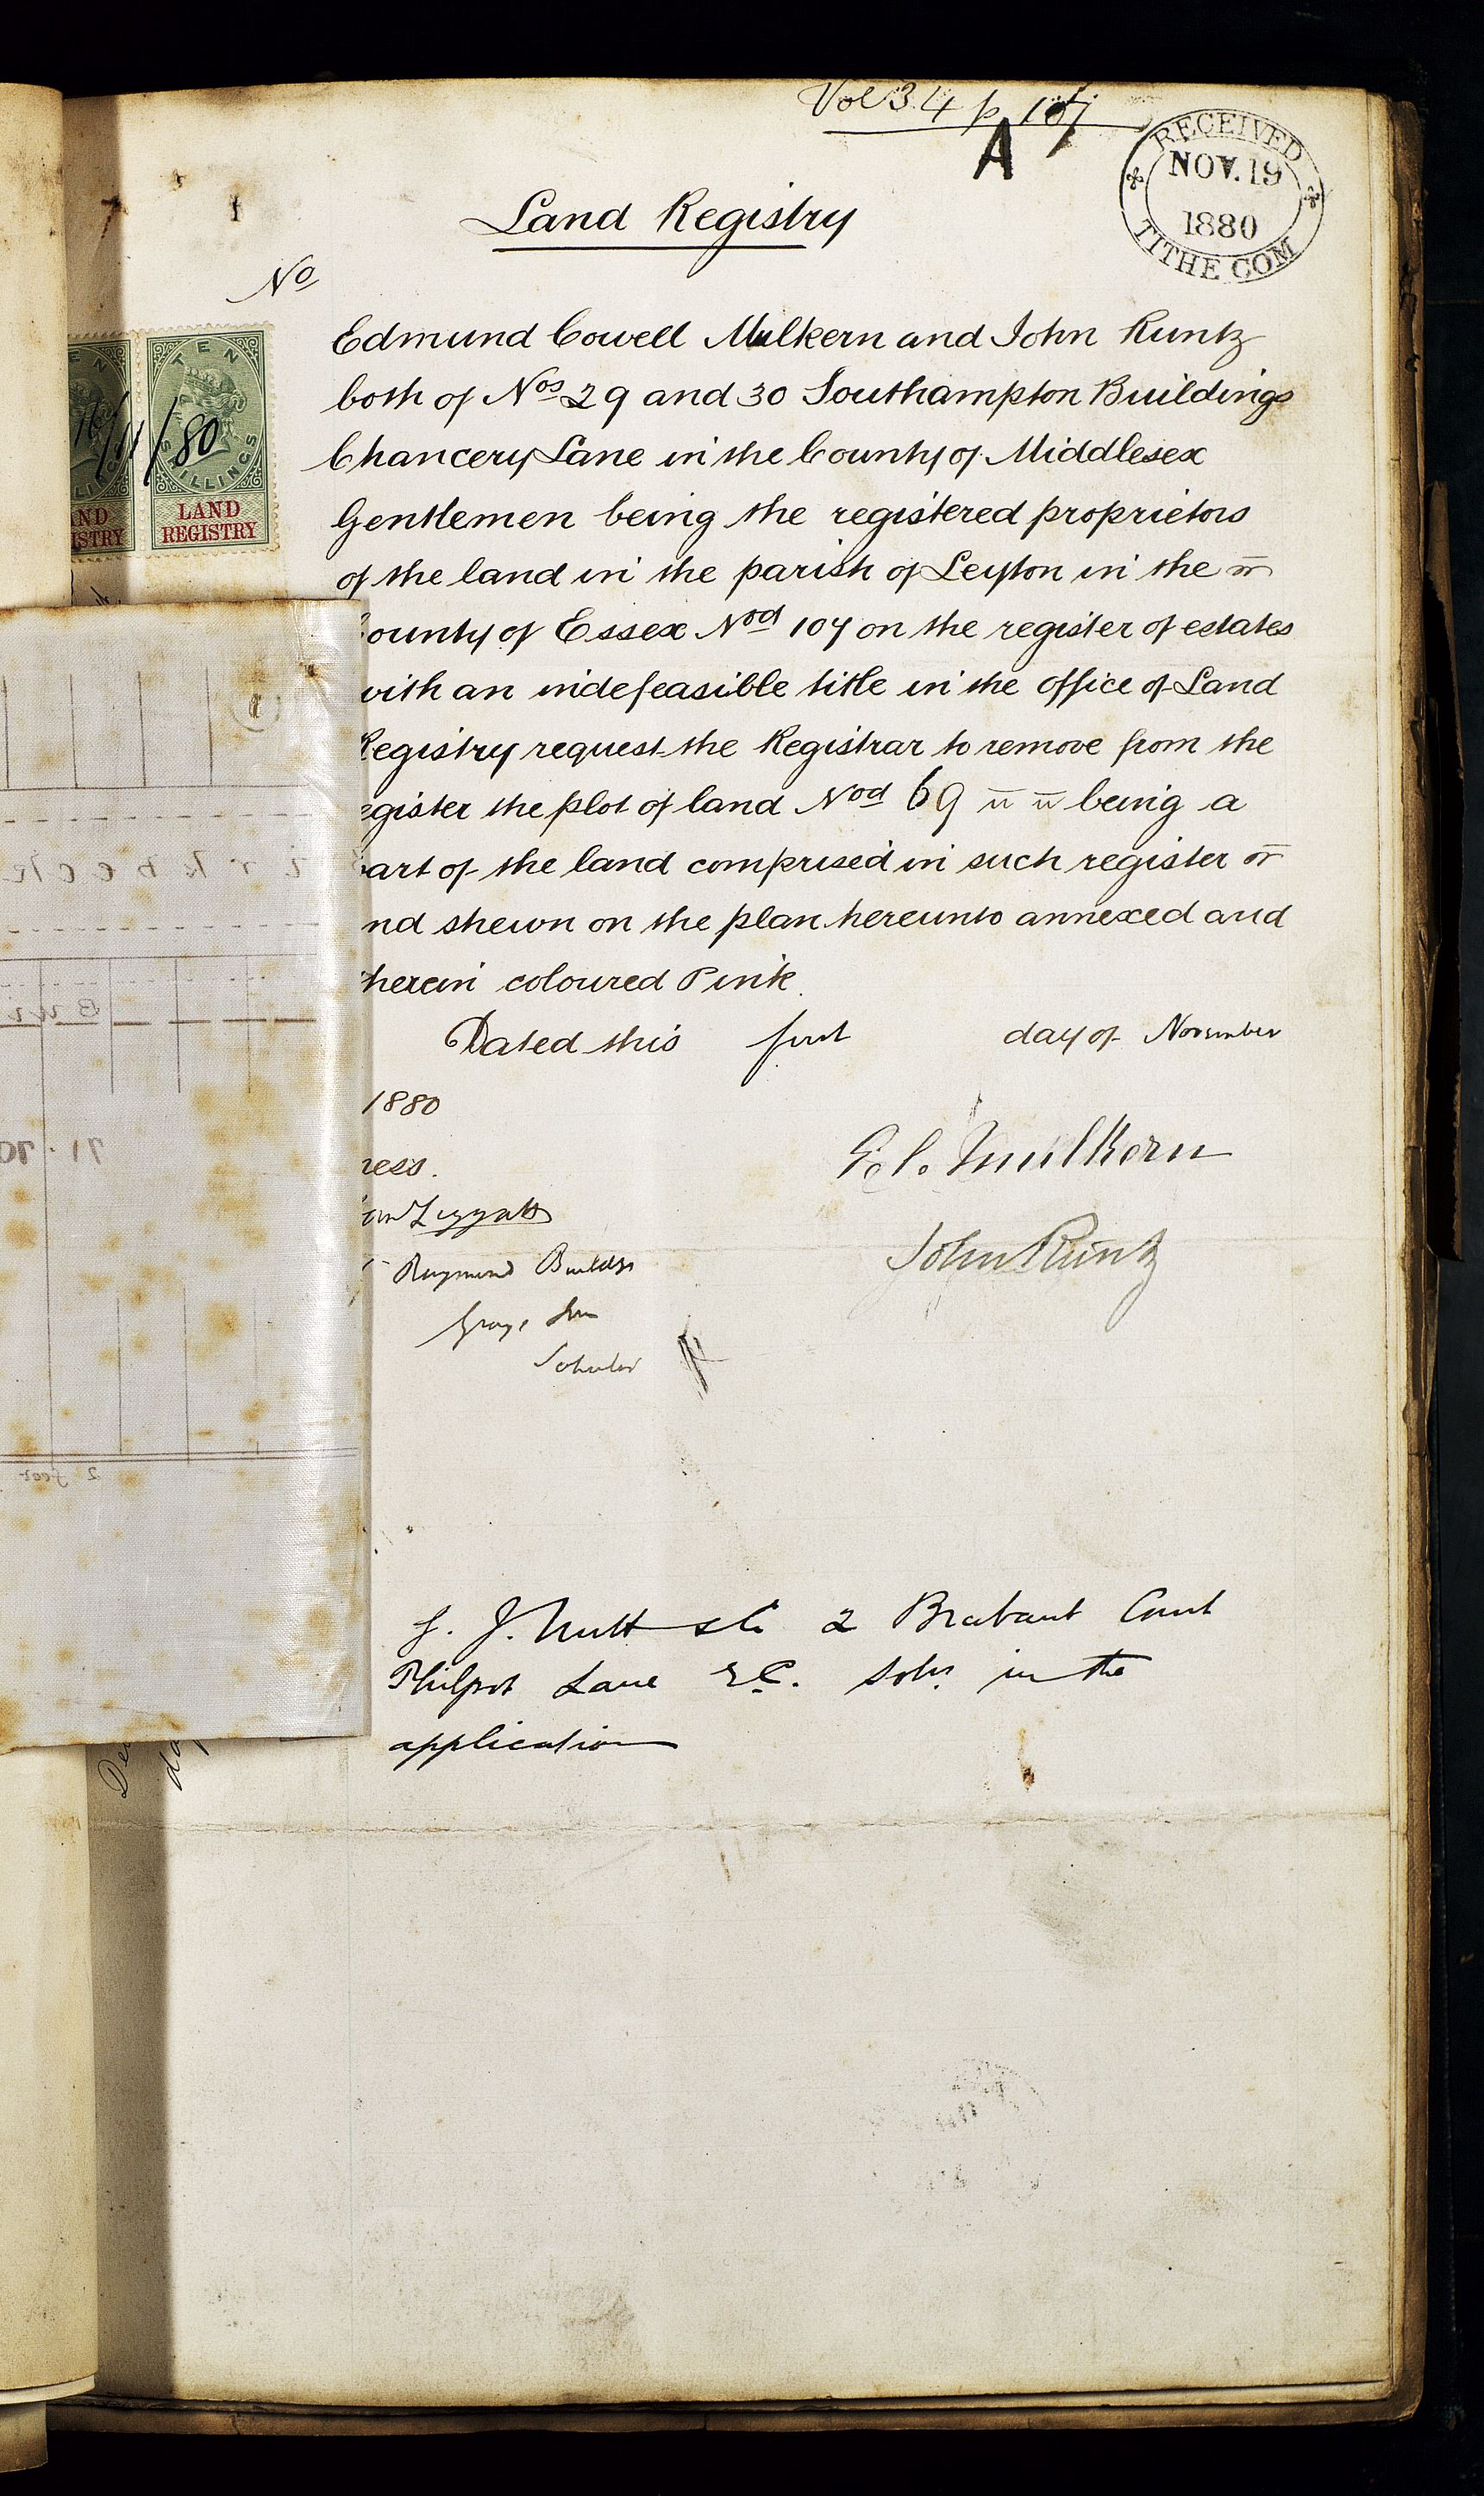 Vol 34 p 167
A
RECEIVED
NOV. 19
1880
TITHE COM
1
Land Registry
No
TEN
SHILLINGS
LAND
REGISTRY
AND
ISTRY
16/11/80
Edmund Cowell Mulkern and John Runtz
both of Nos 29 and 30 Southampton Buildings
Chancery Lane in the County of Middlesex
Gentlemen being the registered proprietors
of the land in the parish of Leyton in the
ounty of Essex Nod 107 on the register of estates
with an indefeasible title in the office of Land
Registry request the Registrar to remove from the
egister the plot of land Nod 69 being a
part of the land comprised in such register
nd shewn on the plan hereunto annexed and
therein coloured Pink.
Dated this first day of November
1880
ness.
E. C. Mulkern
Liggatt
John Runtz
Raymond Buildgs
Grays Inn
Solicitor
J. Nutt & Co 2 Brabant Court
Philpot Lane E.C. Solrs in the
application
irkbeck
Bui
71
2 feet